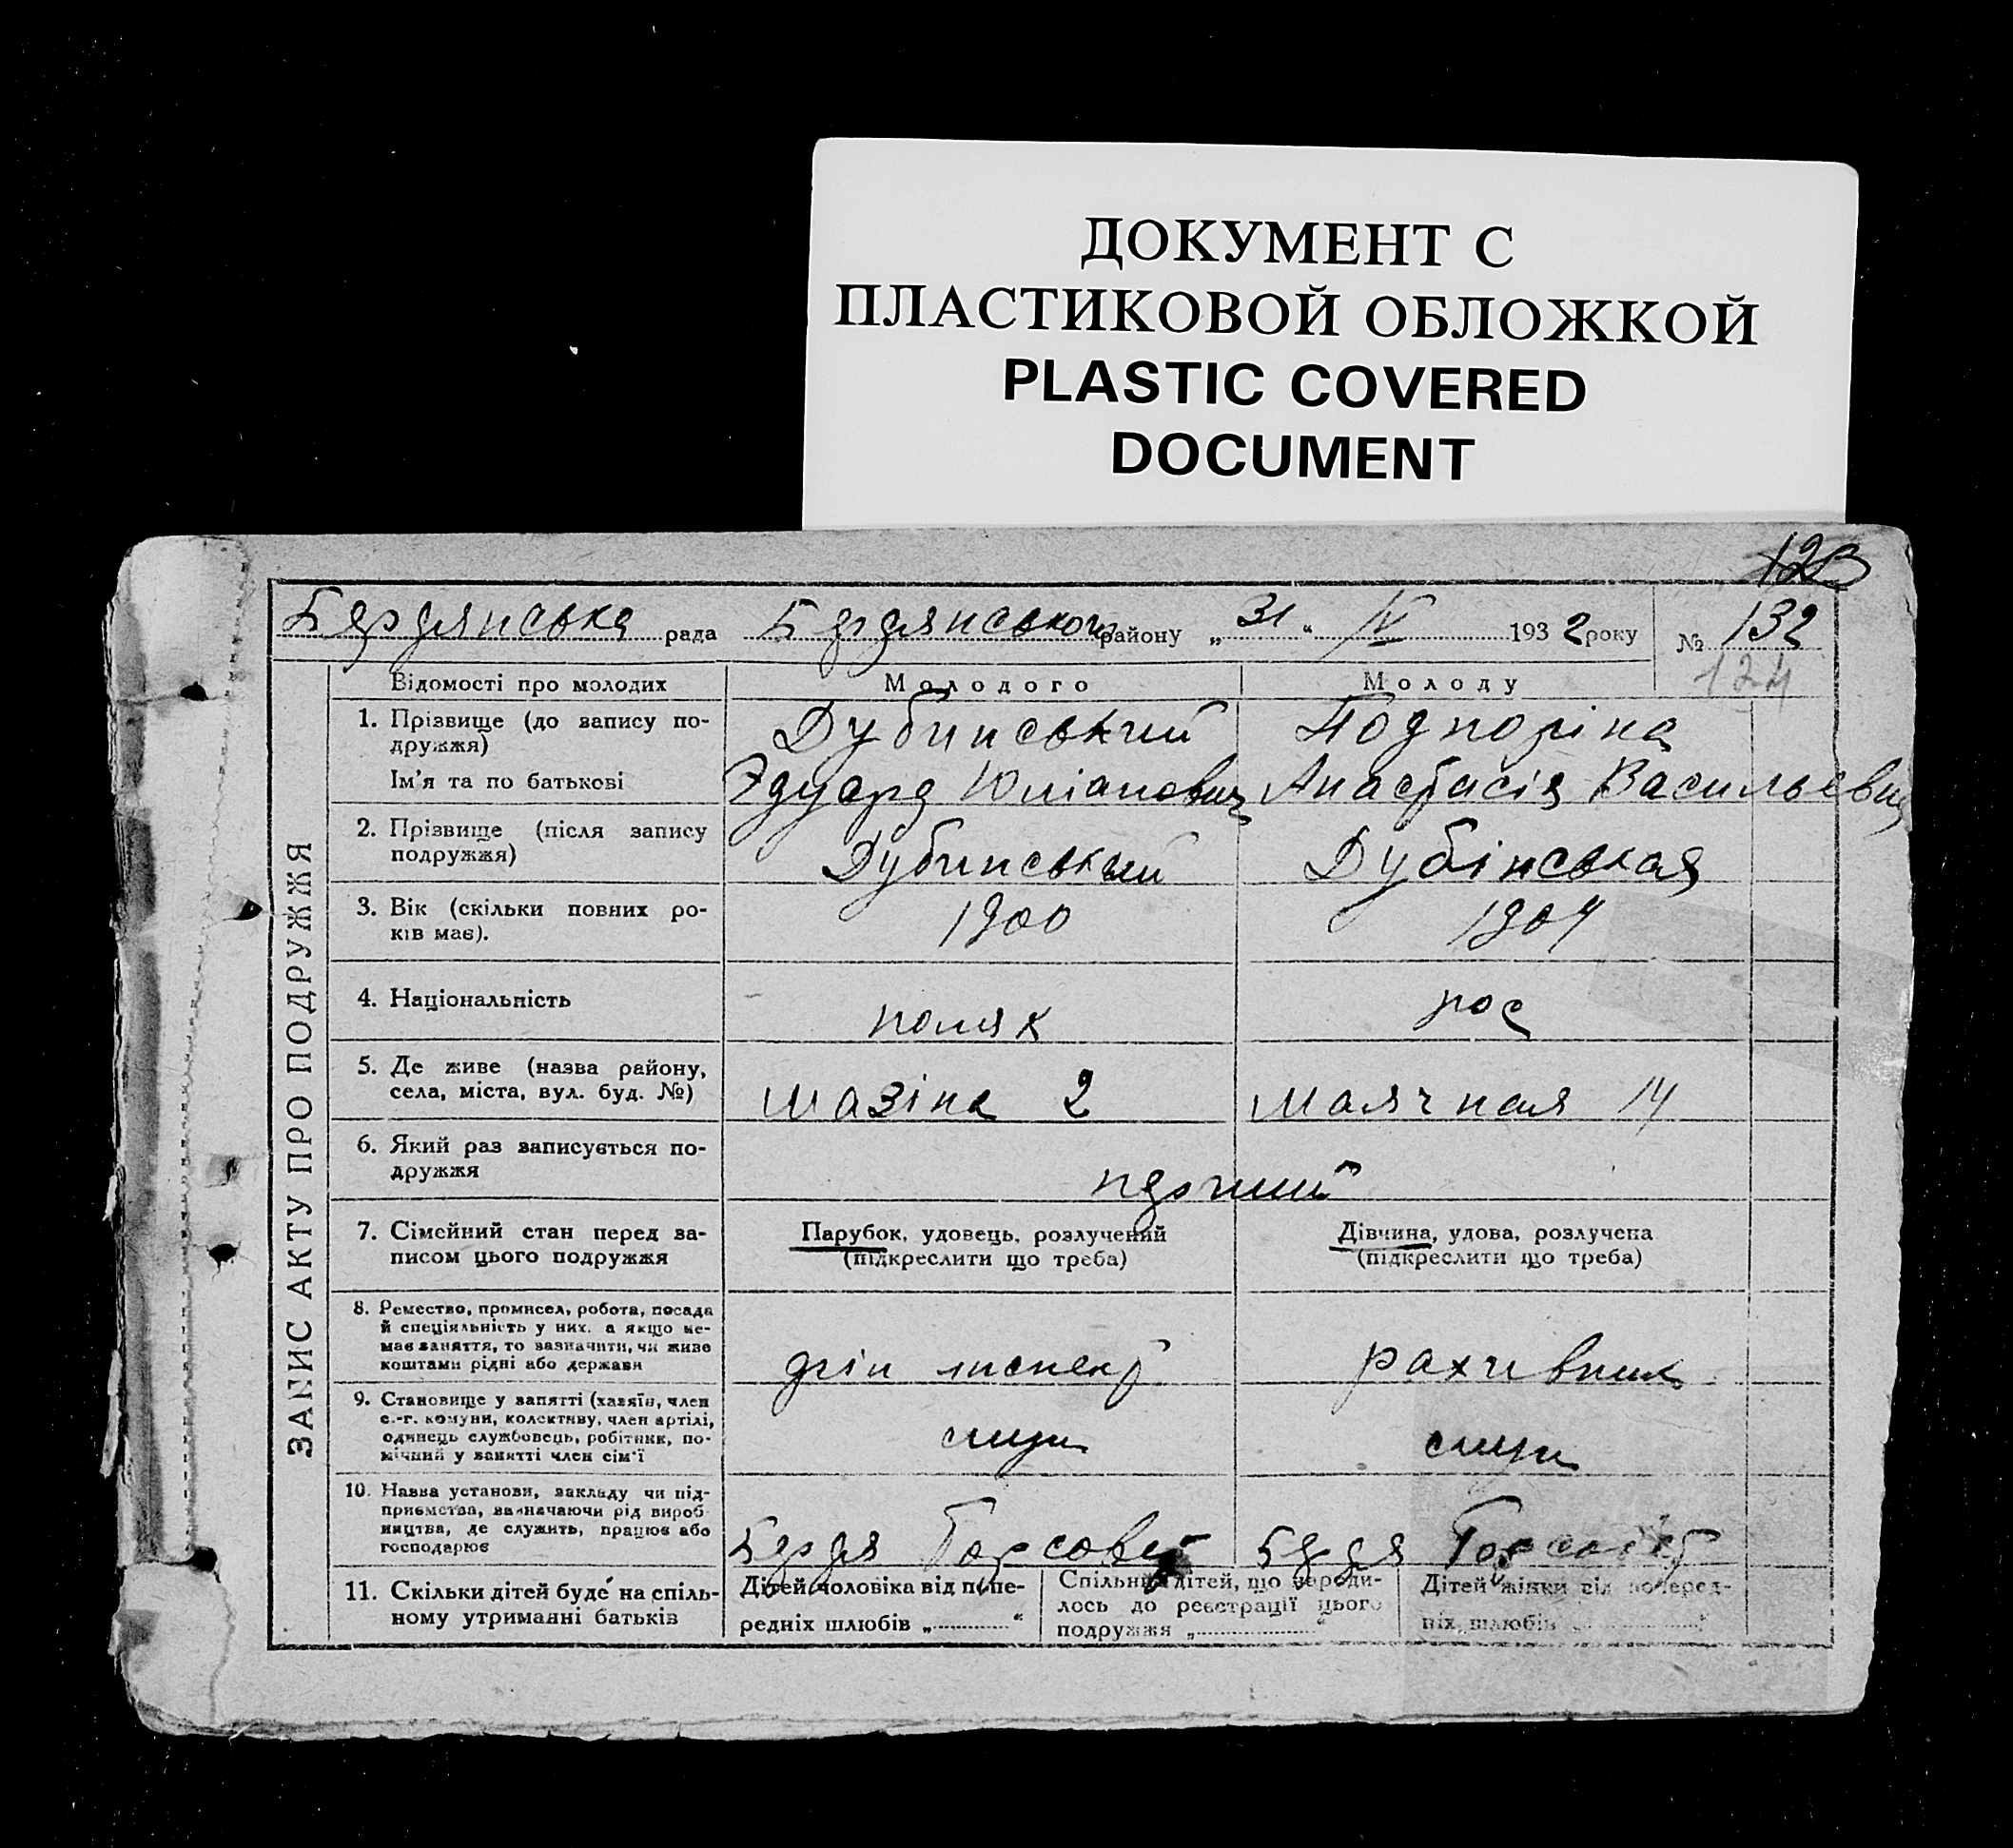 ДОКУМЕНТ С
ПЛАСТИКОВОЙ ОБЛОЖКОЙ
PLASTIC COVERED
DOCUMENT
123
Бердянська рада Бердянського району „31“ IV 1932 року № 132
124
ЗАПИС АКТУ ПРО ПОДРУЖЖЯ
Відомості про молодих Молодого Молоду
1. Прізвище (до запису по-
дружжя)
Дубинський Подпоріна
Ім'я та по батькові Эдуард Юліанович Анастасія Васильевна
2. Прізвище (після запису
подружжя)
Дубинський Дубінськая
3. Вік (скільки повних ро-
ків має).
1900 1904
4. Національність поляк рос
5. Де живе (назва району,
села, міста, вул. буд. №)
Мазіна 2 Маячная 14
6. Який раз записується по-
дружжя
перший
7. Сімейний стан перед за-
писом цього подружжя
Парубок, удовець, розлучений
(підкреслити що треба)
Дівчина, удова, розлучена
(підкреслити що треба)
8. Ремество, промисел, робота, посада
й спеціяльність у них. а якщо не-
має заняття, то зазначити, чи живе
коштами рідні або держави
фін инспект рахивник
9. Становище у занятті (хазяїн, член
с.-г. комуни, колективу, член артілі,
одинець службовець, робітник, по-
мічний у занятті член сім'ї
служ служ
10. Назва установи, закладу чи під-
приємства, зазначаючи рід вироб-
ництва, де служить, працює або
господарює
Бердя Горсовет Бердя Горсовет
11. Скільки дітей буде на спіль-
ному утриманні батьків
Дітей чоловіка від попе-
редніх шлюбів „ “
Спільних дітей, що народи-
лось до реєстрації цього
подружжя „ “
Дітей жінки від поперед-
ніх шлюбів „ “